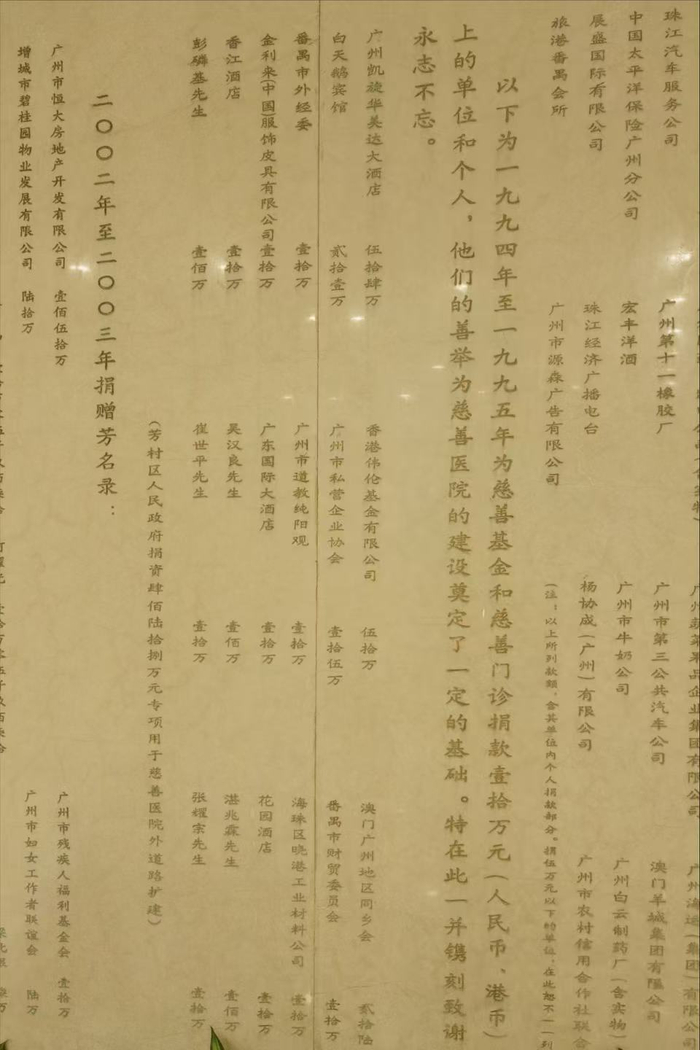 珠江汽车服务公司 广州第十一橡胶厂 广州市第三公共汽车公司 澳门羊城集团有限公司
中国太平洋保险广州分公司 宏丰洋酒 广州市牛奶公司 广州白云制药厂(含实物)
展盛国际有限公司 珠江经济广播电台 杨协成(广州)有限公司 广州市农村信用合作社联合
旅港番禺会所 广州市源森广告有限公司 (注：以上所列款额，含其单位内个人捐款部分。捐伍万元以下的单位，在此恕不一一列
以下为一九九四年至一九九五年为慈善基金和慈善门诊捐款壹拾万元(人民币、港币)
上的单位和个人，他们的善举为慈善医院的建设奠定了一定的基础。特在此一并镌刻致谢
永志不忘。
广州凯旋华美达大酒店 伍拾肆万 香港伟伦基金有限公司 伍拾万 澳门广州地区同乡会 贰拾陆
白天鹅宾馆 贰拾壹万 广州市私营企业协会 壹拾伍万 番禺市财贸委员会 壹拾万
番禺市外经委 壹拾万 广州市道教纯阳观 壹拾万 海珠区晓港工业材料公司 壹拾万
金利来(中国)服饰皮具有限公司 壹拾万 广东国际大酒店 壹拾万 花园酒店 壹拾万
香江酒店 壹拾万 吴汉良先生 壹佰万 湛兆霖先生 壹佰万
彭磷基先生 壹佰万 崔世平先生 壹拾万 张耀宗先生 壹拾万
(芳村区人民政府捐资肆佰陆拾捌万元专项用于慈善医院外道路扩建)
二〇〇二年至二〇〇三年捐赠芳名录：
广州市恒大房地产开发有限公司 壹佰伍拾万 广州市残疾人福利基金会 壹拾万
增城市碧桂园物业发展有限公司 陆拾万 广州市妇女工作者联谊会 陆万